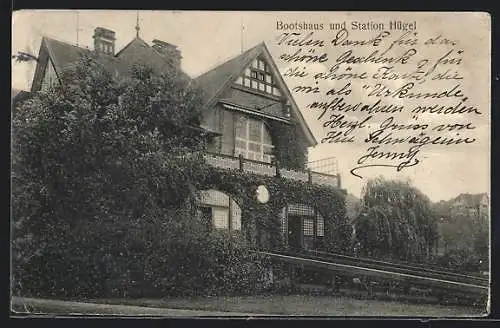 Bootshaus und Station Hügel
Vielen Dank für das
schöne Geschenk & für
die schöne Karte, die
wir als "Urkunde
aufbewahren werden
Herzl. Gruss von
Ihrer Schwägerin
Jenny